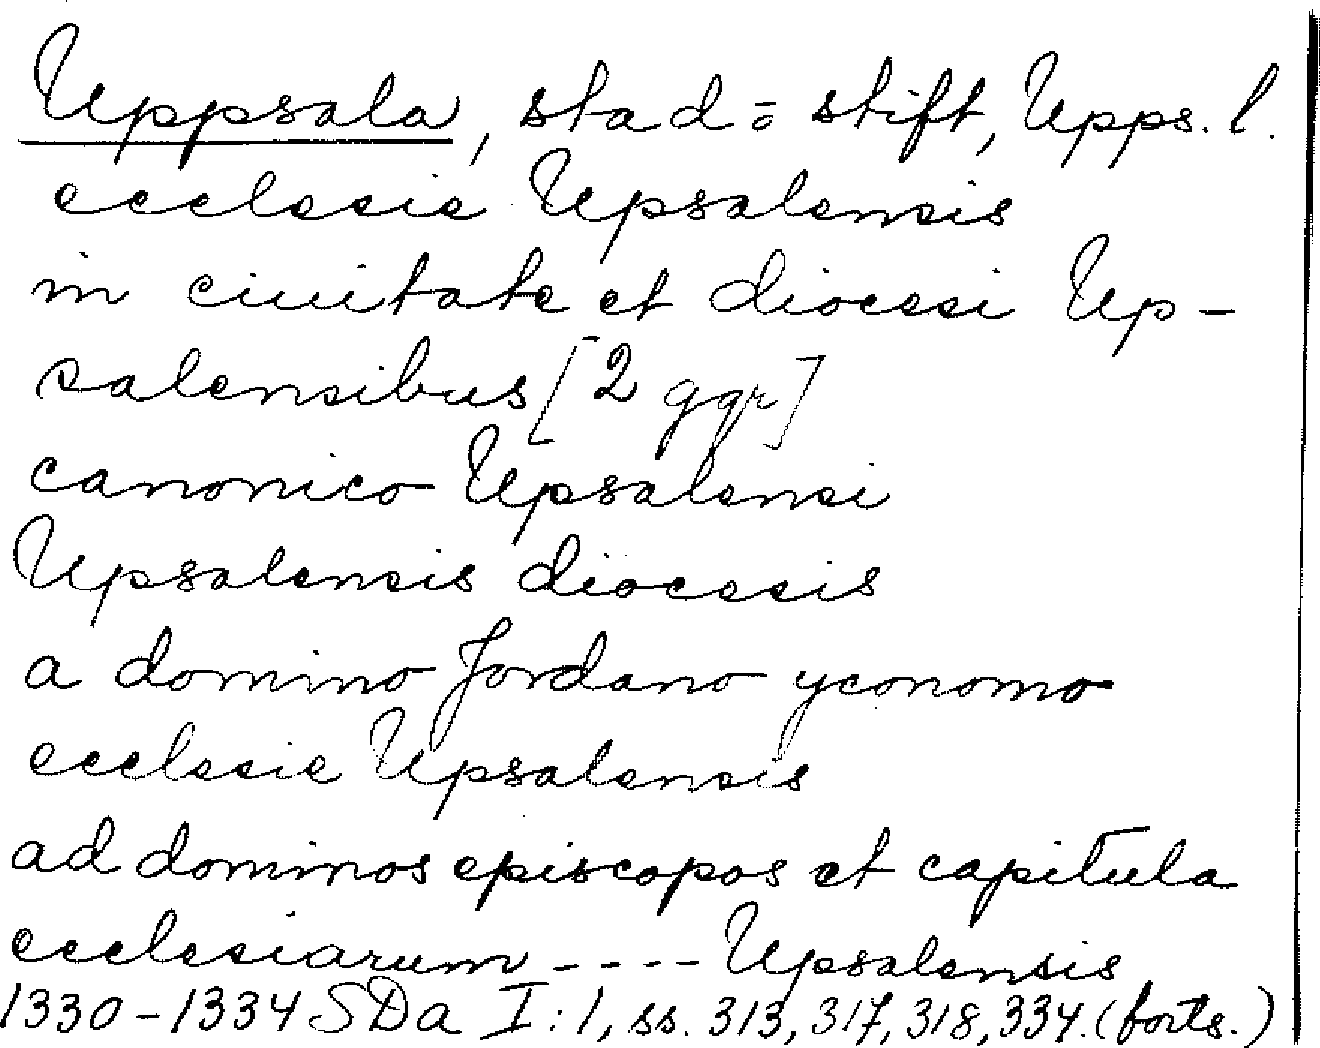 Uppsala, stad o stift, Upps. l.
ecclesie Upsalensis
in ciuitate et diocesi Up-
salensibus [2 ggr]
canonico Upsalensi
Upsalensis diocesis
a domino Jordano yconomo
ecclesie Upsalensis
ad dominos episcopos et capitula
ecclesiarum ---- Upsalensis
1330-1334 SDa I:1, ss. 313, 317, 318, 334. (forts.)